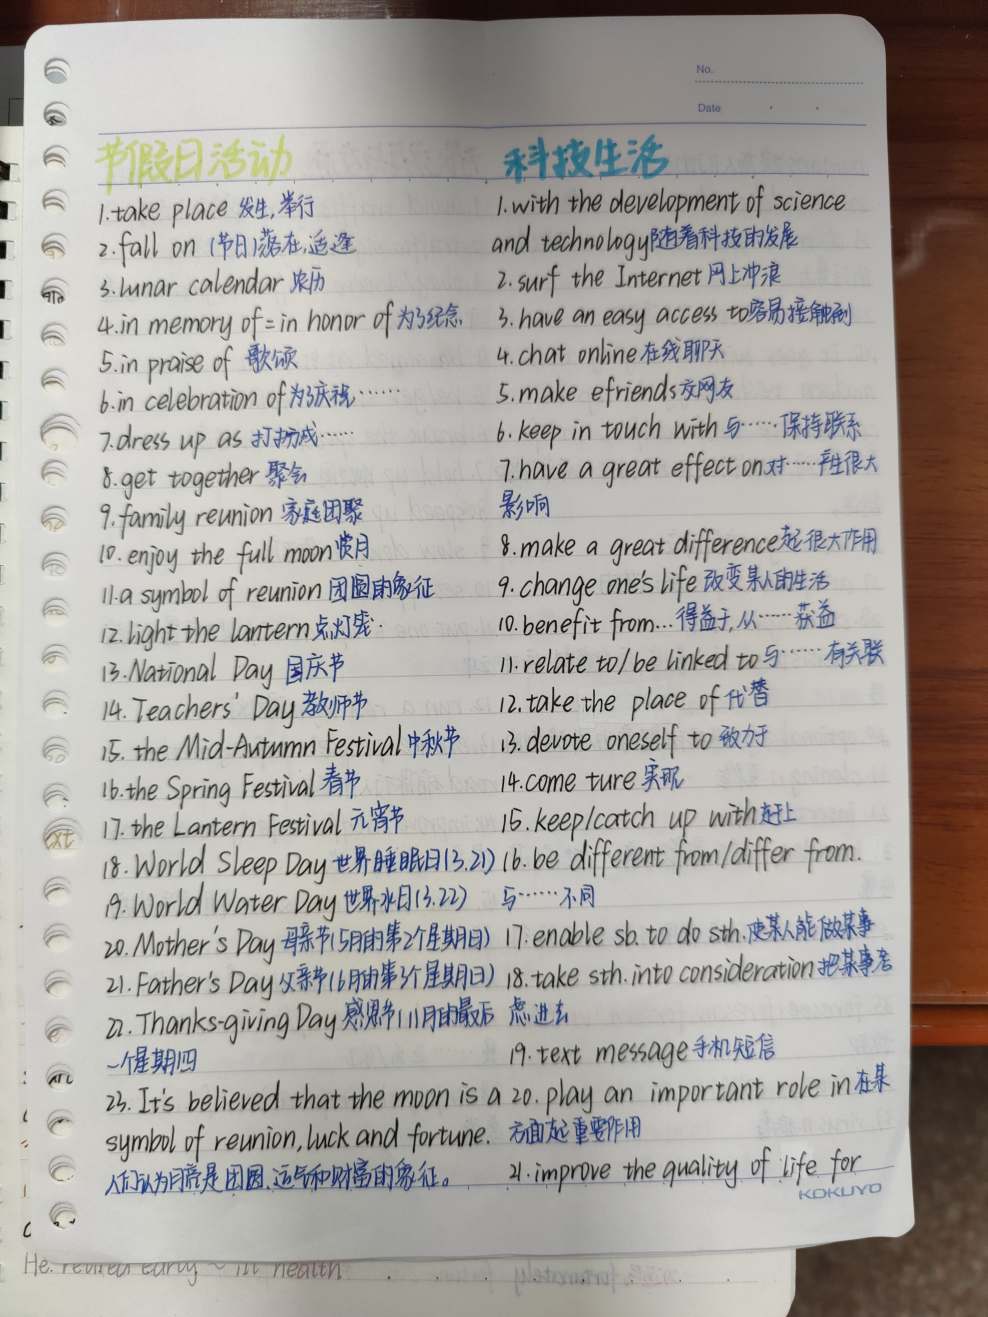 No.
Date
节假日活动
1.take place 发生,举行
2.fall on (节日)落在,适逢
3.lunar calendar 农历
4.in memory of=in honor of 为了纪念
5.in praise of 歌颂
6.in celebration of 为了庆祝……
7.dress up as 打扮成……
8.get together 聚会
9.family reunion 家庭团聚
10.enjoy the full moon 赏月
11.a symbol of reunion 团圆的象征
12.light the lantern 点灯笼.
13.National Day 国庆节
14.Teachers' Day 教师节
15.the Mid-Autumn Festival 中秋节
16.the Spring Festival 春节
17.the Lantern Festival 元宵节
18.World Sleep Day 世界睡眠日(3.21)
19.World Water Day 世界水日(3.22)
20.Mother's Day 母亲节(5月的第2个星期日)
21.Father's Day 父亲节(6月的第3个星期日)
22.Thanks-giving Day 感恩节(11月的最后
一个星期四
23.It's believed that the moon is a
symbol of reunion,luck and fortune.
人们认为月亮是团圆.运气和财富的象征。
科技生活
1.with the development of science
and technology随着科技的发展
2.surf the Internet 网上冲浪
3.have an easy access to容易接触到
4.chat online 在线聊天
5.make efriends 交网友
6.keep in touch with 与……保持联系
7.have a great effect on对……产生很大
影响
8.make a great difference起很大作用
9.change one's life 改变某人的生活
10.benefit from... 得益于,从……获益
11.relate to/be linked to 与……有关联
12.take the place of 代替
13.devote oneself to 致力于
14.come ture 实现
15.keep/catch up with 赶上
16.be different from/differ from.
与……不同
17.enable sb. to do sth.使某人能做某事
18.take sth. into consideration 把某事考
虑进去
19.text message 手机短信
20.play an important role in 在某
方面起重要作用
21.improve the quality of life for
KOKUYO
He. retired early ~ ill health